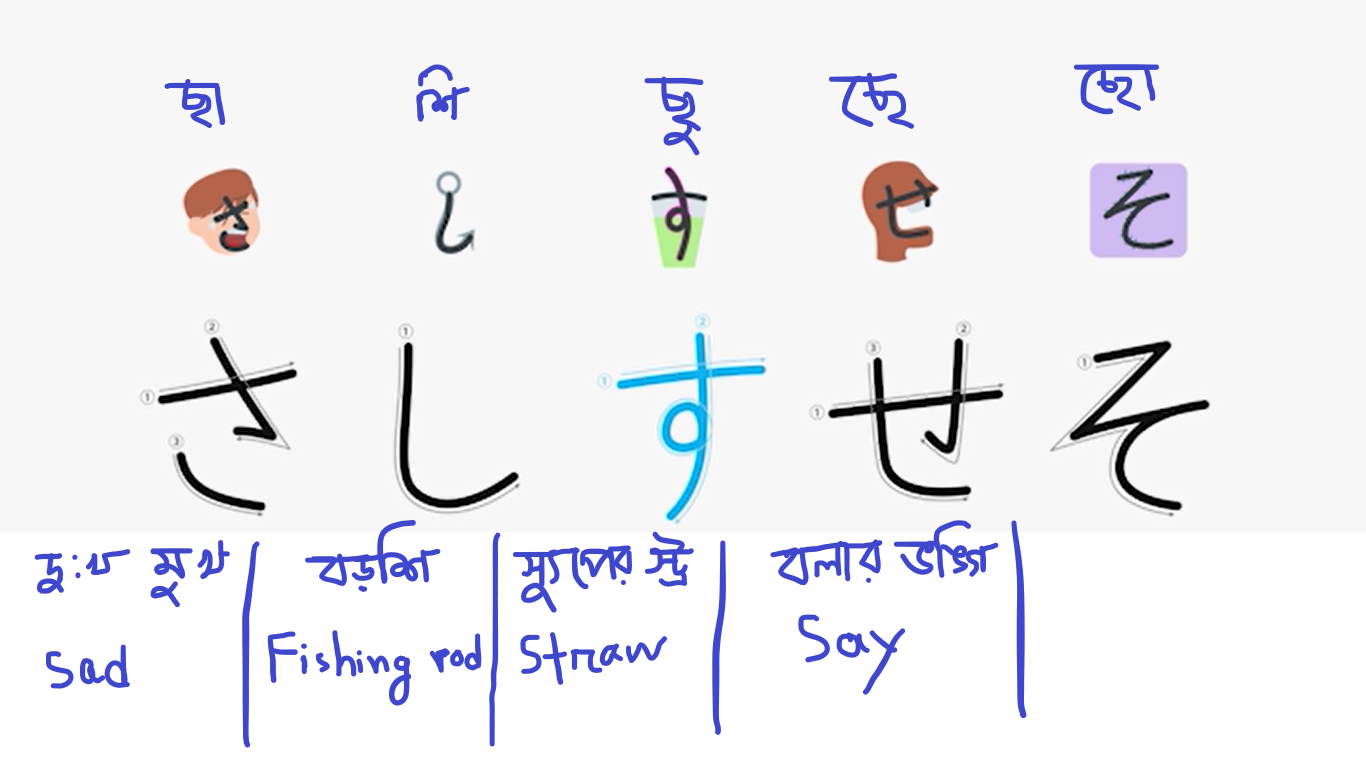 ছা শি ছু ছে ছো
さ し す せ そ
② ① ② ③ ② ①
① ① ①
③
さ し す せ そ
দুঃখ মুখ বড়শি স্যুপের স্ট্র বলার ভঙ্গি
Sad Fishing rod Straw Say